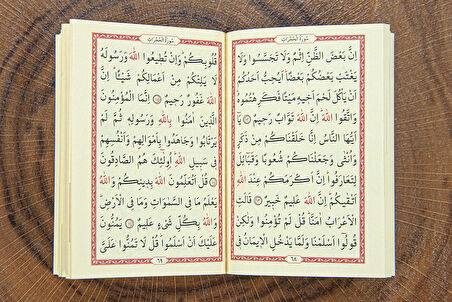 سُورَةُ الْحُجُرَاتِ
اِنَّ بَعْضَ الظَّنِّ اِثْمٌ وَلَا تَجَسَّسُوا وَلَا
يَغْتَبْ بَعْضُكُمْ بَعْضًا اَيُحِبُّ اَحَدُكُمْ
اَنْ يَأْكُلَ لَحْمَ اَخِيهِ مَيْتًا فَكَرِهْتُمُوهُ
وَاتَّقُوا اللّٰهَ اِنَّ اللّٰهَ تَوَّابٌ رَحِيمٌ يَٓا
اَيُّهَا النَّاسُ اِنَّا خَلَقْنَاكُمْ مِنْ ذَكَرٍ
وَاُنْثٰى وَجَعَلْنَاكُمْ شُعُوبًا وَقَبَٓائِلَ
لِتَعَارَفُوا اِنَّ اَكْرَمَكُمْ عِنْدَ اللّٰهِ
اَتْقٰيكُمْ اِنَّ اللّٰهَ عَلِيمٌ خَبِيرٌ قَالَتِ
الْاَعْرَابُ اٰمَنَّا قُلْ لَمْ تُؤْمِنُوا وَلٰكِنْ
قُولُٓوا اَسْلَمْنَا وَلَمَّا يَدْخُلِ الْاِيمَانُ فِي
٦٨
سُورَةُ الْحُجُرَاتِ
قُلُوبِكُمْ وَاِنْ تُطِيعُوا اللّٰهَ وَرَسُولَهُ
لَا يَلِتْكُمْ مِنْ اَعْمَالِكُمْ شَيْئًا اِنَّ
اللّٰهَ غَفُورٌ رَحِيمٌ اِنَّمَا الْمُؤْمِنُونَ
الَّذِينَ اٰمَنُوا بِاللّٰهِ وَرَسُولِهِ ثُمَّ لَمْ
يَرْتَابُوا وَجَاهَدُوا بِاَمْوَالِهِمْ وَاَنْفُسِهِمْ
فِي سَبِيلِ اللّٰهِ اُولٰٓئِكَ هُمُ الصَّادِقُونَ
قُلْ اَتُعَلِّمُونَ اللّٰهَ بِدِينِكُمْ وَاللّٰهُ
يَعْلَمُ مَا فِي السَّمٰوَاتِ وَمَا فِي الْاَرْضِ
وَاللّٰهُ بِكُلِّ شَيْءٍ عَلِيمٌ يَمُنُّونَ
عَلَيْكَ اَنْ اَسْلَمُوا قُلْ لَا تَمُنُّوا عَلَيَّ
٦٩